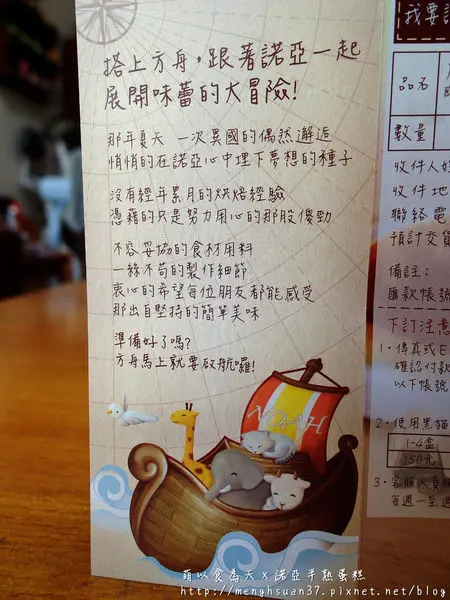 搭上方舟，跟著諾亞一起
展開味蕾的大冒險!
那年夏天 一次異國的偶然邂逅
悄悄的在諾亞心中埋下夢想的種子
沒有經年累月的烘焙經驗
憑藉的只是努力用心的那股傻勁
不容妥協的食材用料
一絲不苟的製作細節
衷心的希望每位朋友都能感受
那出自堅持的簡單美味
準備好了嗎?
方舟馬上就要啟航囉!
NOAH
我要
品名
數量
收件人
收件地
聯絡電
預計交貨
備註:
匯款帳號
下訂注意
1．傳真或E
確認付款
以下帳號
2．使用黑貓
1-4盒
150元
3．客服人員
每週一至週
萌以食為天 x 諾亞半熟蛋糕
http://menghsuan37.pixnet.net/blog